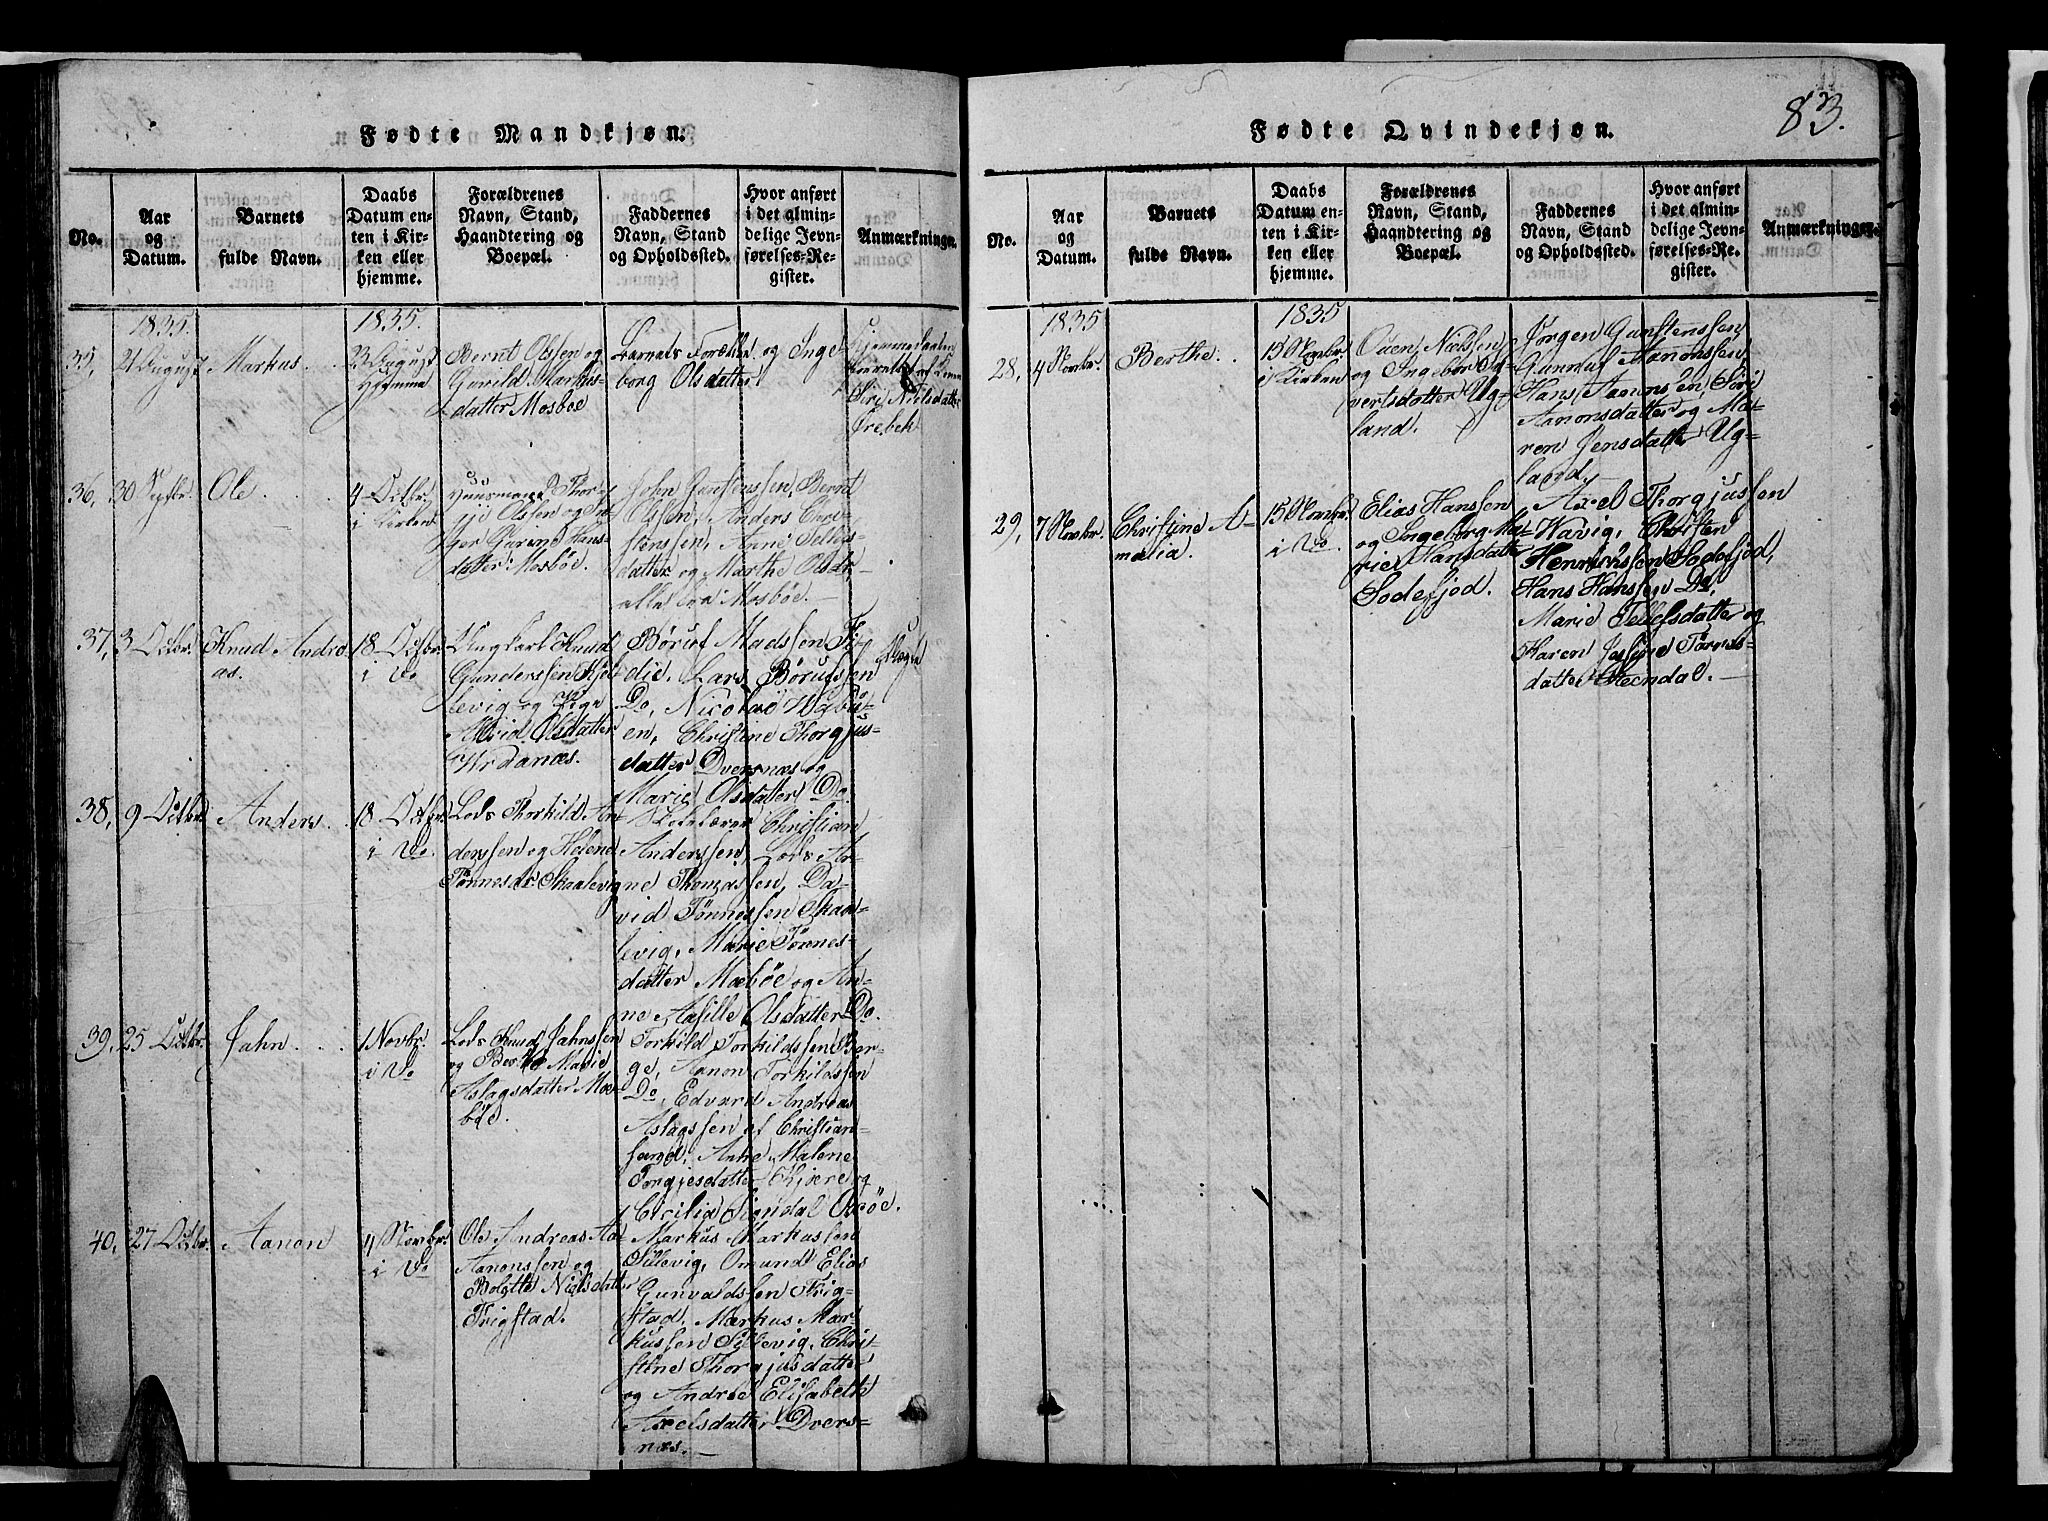 Fødte Mandkjøn.
No.
Aar
og
Datum.
Barnets
fulde Navn.
Daabs
Datum en-
ten i Kir-
ken eller
hjemme.
Forældrenes
Navn, Stand,
Haandtering og
Boepæl.
Faddernes
Navn, Stand
og Opholdssted.
Hvor anført
i det almin-
delige Jevn-
førelses-Re-
gister.
Anmærkninger.
1835.
1835.
35,
21 August
Markus.
23 August
Hjemme
Bernt Olssen og
Gunild Markus-
datter Mosbøe
Barnets Forældre og Inge-
borg Olsdatter
Hjemmedaaben
forrettet af
Siri Nielsdatter
Ørebek
36,
30 Septbr.
Ole
4 Octbr.
i Kirken
Huusmand Thor-
je Olssen og In-
ger Gurine Hans-
datter Mosbøe.
John Jenssen, Bernt
Olssen, Anders Chri-
stenssen, Anne Tellefs-
datter og Marthe Olsdr.
alle fra Mosbøe.
37,
3 Octbr.
Knud Andre-
as.
18 Octbr.
i Do
Ungkarl Knud
Gunderssen Kjø-
levig og Pige
Astrid Olsdatter
Ordanæs.
Børuf Madssen Ti-
die, Lars Børufssen
Do, Nicolai
en, Christine Thorgjus-
datter Dversnæs og
Marie Olsdatter Do.
Uægte
38,
9 Octbr.
Anders.
18 Octbr.
i Do.
Lods Thorkild An-
derssen og Helene
Tønnesdr. Skaalevig
Skolelærer Christian
Anderssen, Lods Ar-
ne Thomassen, Da-
vid Tønnessen Skaa-
levig, Marie Tønnes-
datter Mæbøe og An-
ne Assille Olsdatter Do.
39,
25 Octbr.
Jahn
1 Novbr.
i Do
Lods Knud Jahnssen
og Berthe Marie
Aslagsdatter Mæ-
bøe.
Torkild Torkildssen Ber-
ge, Aanon Torkildssen
Do, Edvard Andreas
Aslagssen af Christian-
sand, Anne Malene
Torgjesdatter Kjære og
Cicilia Signdal Oxøe.
40,
27 Octbr.
Aanon
11 Novbr.
i Do
Ole Andreas Aa-
Aanonssen og
Bolette Nielsdatter
Trigstad.
Markus Markussen
Sillevig, Omund Elias
Gunvaldssen Trig-
stad, Markus Mar-
kussen Sillevig, Chri-
stine Thorgjusdatter
og Andrea Elisabeth
Axelsdatter Dvers-
næs.
Fødte Qvindekjøn.
83.
No.
Aar
og
Datum.
Barnets
fulde Navn.
Daabs
Datum en-
ten i Kir-
ken eller
hjemme.
Forældrenes
Navn, Stand,
Haandtering og
Boepæl.
Faddernes
Navn, Stand
og Opholdssted.
Hvor anført
i det almin-
delige Jevn-
førelses-Re-
gister.
Anmærkninger.
1835
1835
28,
4 Novbr.
Berthe.
15 Novbr.
i Kirken
Ouen Nielsen
og Ingebor Sy-
vertsdatter Ug-
land.
Jørgen Gunstenssen,
Gunnuf Aanonssen,
Hans Aanonsen, Siri
Aanonsdatter og Ma-
ren Jensdatter Ug-
land,
29,
7 Novbr.
Christine A-
malia.
15 Novbr.
i Do
Elias Hanssen
og Ingeborg Ma-
rie Hansdatter
Sodefjed.
Axel Thorgjussen
Wavig, Christen
Henrichssen Sodefjed,
Hans Hanssen Do,
Marie Tellefsdatter og
Karen Josine Tønnes-
datter Steendal.